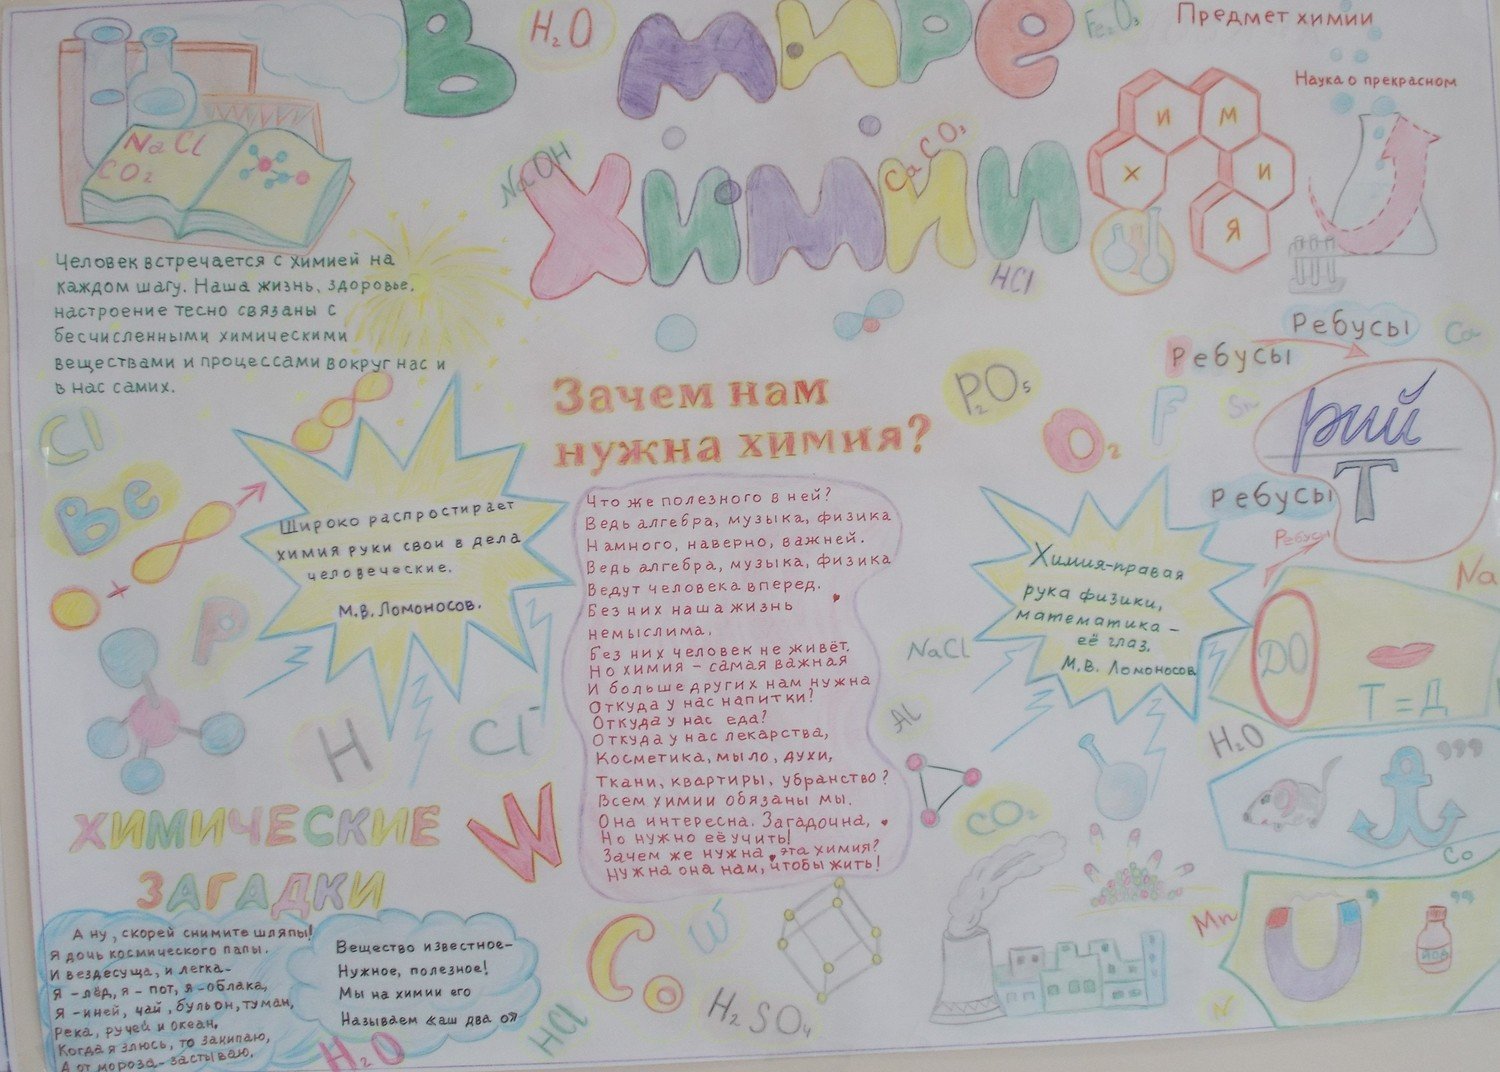 В мире
химии
H₂O
Fe₂O₃
NaOH
CaCO₃
HCl
NaCl
CO₂
Предмет химии
Наука о прекрасном
Х
И
М
И
Я
Человек встречается с химией на
каждом шагу. Наша жизнь, здоровье,
настроение тесно связаны с
бесчисленными химическими
веществами и процессами вокруг нас и
в нас самих.
Cl
Be
P
Широко распростирает
химия руки свои в дела
человеческие.
М.В. Ломоносов.
H
Cl⁻
W
Зачем нам
нужна химия?
Что же полезного в ней?
Ведь алгебра, музыка, физика
Намного, наверно, важней.
Ведь алгебра, музыка, физика
Ведут человека вперед.
Без них наша жизнь
немыслима,
Без них человек не живёт.
Но химия – самая важная
И больше других нам нужна
Откуда у нас напитки?
Откуда у нас еда?
Откуда у нас лекарства,
Косметика, мыло, духи,
Ткани, квартиры, убранство?
Всем химии обязаны мы.
Она интересна. Загадочна,
Но нужно её учить!
Зачем же нужна эта химия?
Нужна она нам, чтобы жить!
P₂O₅
O₂
F
Sn
Ca
Ребусы
Ребусы
Ребусы
Ребусы
рий
Т
Химия-правая
рука физики,
математика –
её глаз.
М.В. Ломоносов
NaCl
Al
CO₂
Na
ДО
Т = Д
H₂O
,,,
Co
Mn
,
,,
йод
N
Химические
загадки
А ну, скорей снимите шляпы!
Я дочь космического папы.
И вездесуща, и легка–
Я – лёд, я – пот, я – облака,
Я – иней, чай, бульон, туман,
Река, ручей и океан.
Когда я злюсь, то закипаю,
А от мороза – застываю.
Вещество известное–
Нужное, полезное!
Мы на химии его
Называем «аш два о»
H₂O
HCl
Co
W
H₂SO₄